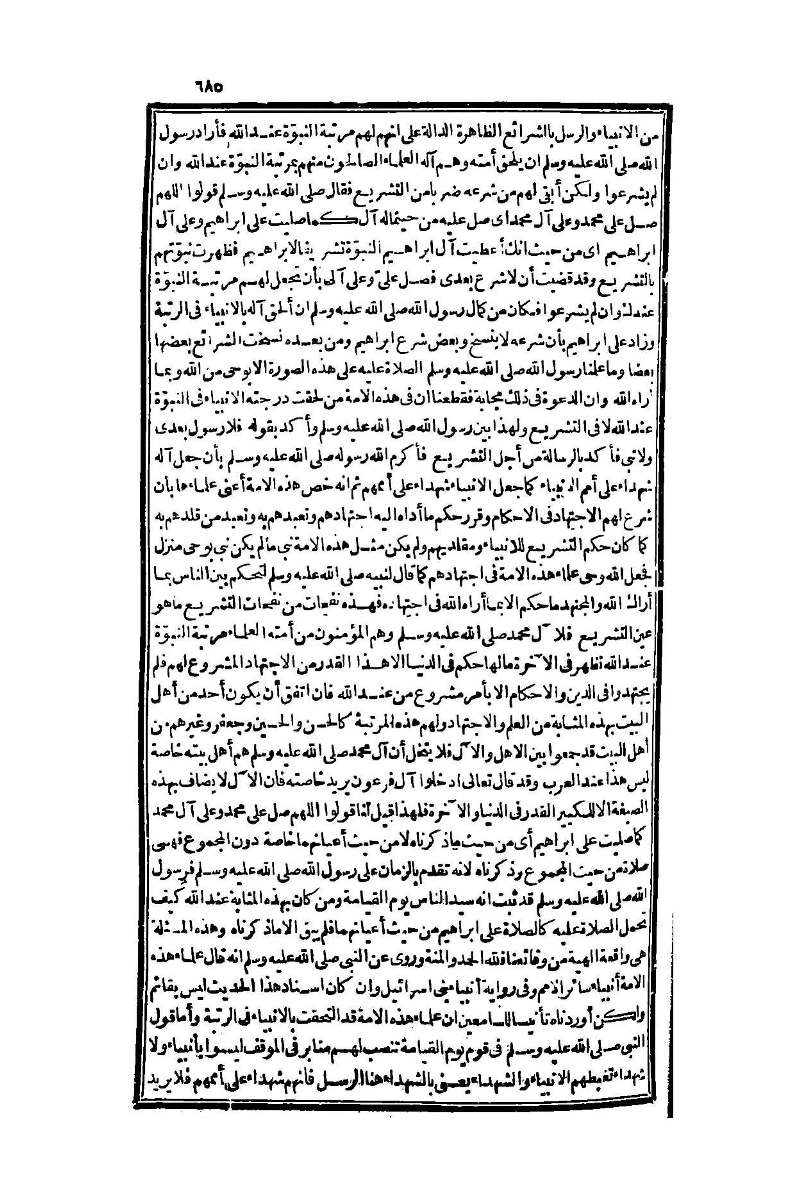 ٦٨٥
من الانبياء والرسل بالشرائع الظاهرة الدالة على انهم لهم مرتبة النبوّة عند الله فأراد رسول
الله صلى الله عليه وسلم ان يلحق أمته وهم آله العلماء الصالحون منهم بمرتبة النبوّة عند الله وان
لم يشرعوا ولكن أبقى لهم من شرعه ضربا من التشريع فقال صلى الله عليه وسلم قولوا اللهم
صل على محمد وعلى آل محمد اى صل عليه من حيث ماله آل كما صليت على ابراهيم وعلى آل
ابراهيم اى من حيث انك أعطيت آل ابراهيم النبوّة تشريفا لابراهيم فظهرت نبوّتهم
بالتشريع وقد قضيت أن لا شرع بعدى فصل علىّ وعلى آلى بأن تجعل لهم مرتبة النبوّة
عندك وان لم يشرعوا فكان من كمال رسول الله صلى الله عليه وسلم ان ألحق آله بالانبياء فى الرتبة
وزاد على ابراهيم بأن شرعه لا ينسخ وبعض شرع ابراهيم ومن بعده نسخت الشرائع بعضها
بعضا وما علمنا رسول الله صلى الله عليه وسلم الصلاة عليه على هذه الصورة الا بوحى من الله وبما
أراه الله وان الدعوة فى ذلك مجابة فقطعنا ان فى هذه الامة من لحقت درجته الانبياء فى النبوّة
عند الله لا فى التشريع ولهذا بين رسول الله صلى الله عليه وسلم وأكد بقوله فلا رسول بعدى
ولا نبى فأكد بالرسالة من أجل التشريع فأكرم الله رسوله صلى الله عليه وسلم بأن جعل آله
شهداء على أمم الانبياء كما جعل الانبياء شهداء على أممهم ثم انه خص هذه الامة أعنى علماءها بأن
شرع لهم الاجتهاد فى الاحكام وقرر حكم ما أداه اليه اجتهادهم وتعبدهم به وتعبد من قلدهم به
كما كان حكم التشريع للانبياء ومقلديهم ولم يكن مثل هذه الامة نبى ما لم يكن نبى بوحى منزل
فجعل الله وحى علماء هذه الامة فى اجتهادهم كما قال لنبيه صلى الله عليه وسلم لتحكم بين الناس بما
أراك الله والمجتهد ما حكم الا بما أراه الله فى اجتهاده فهذه نفحات من نفحات التشريع ما هو
عين التشريع فلآل محمد صلى الله عليه وسلم وهم المؤمنون من أمته العلماء مرتبة النبوّة
عند الله تظهر فى الآخرة مالها حكم فى الدنيا الا هذا القدر من الاجتهاد المشروع لهم فلم
يجتهدوا فى الدين والاحكام الا بأمر مشروع من عند الله فان اتفق أن يكون أحد من أهل
البيت بهذه المثابة من العلم والاجتهاد ولهم هذه المرتبة كالحسن والحسين وجعفر وغيرهم من
أهل البيت قد جمعوا بين الاهل والآل فلا يتخيل أن آل محمد صلى الله عليه وسلم هم أهل بيته خاصة
ليس هذا عند العرب وقد قال تعالى ادخلوا آل فرعون يريد خاصته فان الآل لا يضاف بهذه
الصفة الا للكبير القدر فى الدنيا والآخرة فلهذا قيل لنا قولوا اللهم صل على محمد وعلى آل محمد
كما صليت على ابراهيم أى من حيث ما ذكرناه لا من حيث أعيانهما خاصة دون المجموع فهى
صلاة من حيث المجموع وذكرناه لانه تقدم بالزمان على رسول الله صلى الله عليه وسلم فرسول
الله صلى الله عليه وسلم قد ثبت انه سيد الناس يوم القيامة ومن كان بهذه المثابة عند الله كيف
تحمل الصلاة عليه كالصلاة على ابراهيم من حيث أعيانهما فلم يبق الا ما ذكرناه وهذه المسئلة
هى واقعة الهية من وقائعنا فلله الحمد والمنة وروى عن النبى صلى الله عليه وسلم انه قال علماء هذه
الامة أنبياء سائر الامم وفى رواية أنبياء بنى اسرائيل وان كان اسناد هذا الحديث ليس بقائم
ولكن أوردناه تأنيسا للسامعين ان علماء هذه الامة قد التحقت بالانبياء فى الرتبة وأما قول
النبى صلى الله عليه وسلم فى قوم يوم القيامة تنصب لهم منابر فى الموقف ليسوا بأنبياء ولا
شهداء تغبطهم الانبياء والشهداء يعنى بالشهداء هنا الرسل فانهم شهداء على أممهم فلا يريد